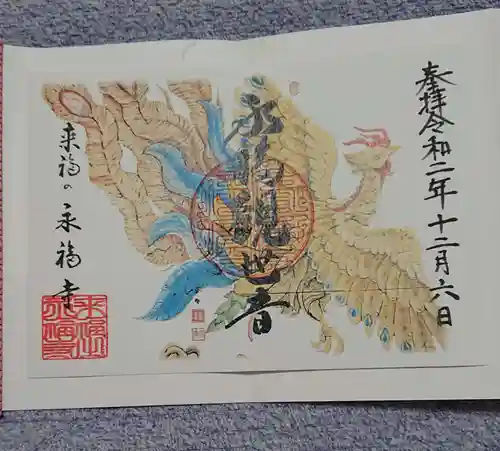 奉拝令和二年十二月六日
永福観世音
来福の永福寺